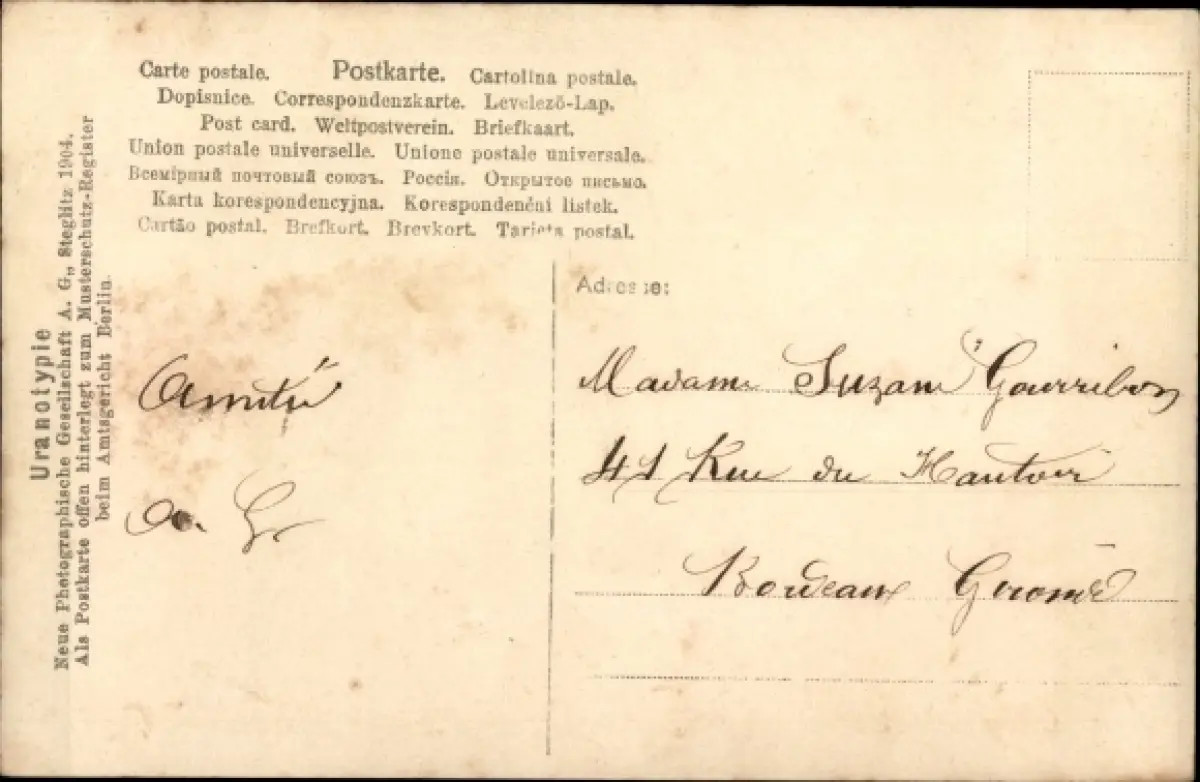 Carte postale. Postkarte. Cartolina postale.
Dopisnice. Correspondenzkarte. Levelező-Lap.
Post card. Weltpostverein. Briefkaart.
Union postale universelle. Unione postale universale.
Всемірный почтовый союзъ. Россія. Открытое письмо.
Karta korespondencyjna. Korespondenční listek.
Cartão postal. Brefkort. Brevkort. Tarjeta postal.
Uranotypie
Neue Photographische Gesellschaft A. G., Steglitz 1904.
Als Postkarte offen hinterlegt zum Musterschutz-Register
beim Amtsgericht Berlin.
Adresse:
Amitié
Madame Suzane
41 Rue du
Bordeaux Gironde